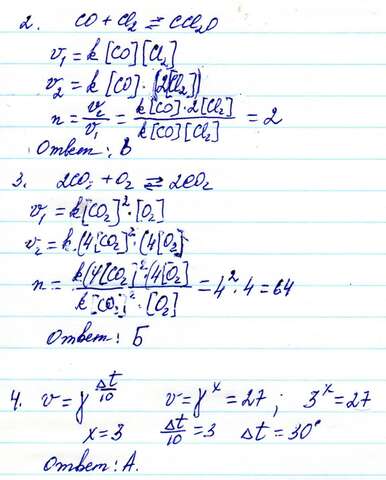 2. CO + Cl₂ ⇄ CCl₂O
v₁ = k [CO] [Cl₂]
v₂ = k [CO] · (2[Cl₂])
n = v₂/v₁ = k[CO]·2[Cl₂] / k[CO][Cl₂] = 2
Ответ: В
3. 2CO₂ + O₂ ⇄ 2CO₂
v₁ = k[CO₂]² · [O₂]
v₂ = k·(4[CO₂])² · (4[O₂]
n = k(4[CO₂])²·(4[O₂] / k[CO₂]²·[O₂] = 4²·4 = 64
Ответ: Б
4. v = γ^(Δt/10) v = γ^x = 27 ; 3^x = 27
x = 3 Δt/10 = 3 Δt = 30°
Ответ: А.